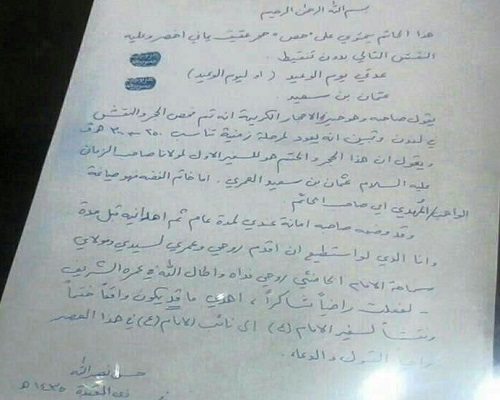 بسم الله الرحمن الرحيم
هذا الخاتم يحتوي على "فص" حجر عقيق يماني احمر وعليه
النقش التالي بدون تنقيط.
عدتي يوم الوعيد (او ليوم الوعيد)
عثمان بن سعيد.
يقول صاحبه وهو خبير بالاحجار الكريمة انه تم فحص الحجر والنقش
في لندن وتبين انه يعود لمرحلة زمنية تناسب ٢٥٠-٣٠٠ هـ
ويقول ان هذا الحجر والختم هو للسفير الاول لمولانا صاحب الزمان
عليه السلام عثمان بن سعيد العمري. اما خاتم الفضة فهو صياغة
الواهب/المُهدي اي صاحب الخاتم
وقد وضعه صاحبه امانة عندي لمدة عام ثم اهدانيه قبل مدة
وانا الذي لو استطيع ان اقدم روحي وعمري لسيدي ومولاي
سماحة الامام الخامنئي روحي فداه واطال الله في عمره الشريف
- لفعلت راضياً شاكراً، اهدي ما قد يكون واقعاً ختماً
ونقشاً لسفير الامام (ع) الى نائب الامام (ع) في هذا العصر
القبول والدعاء
حسن نصرالله
ذي القعدة ١٤٣٥ هـ